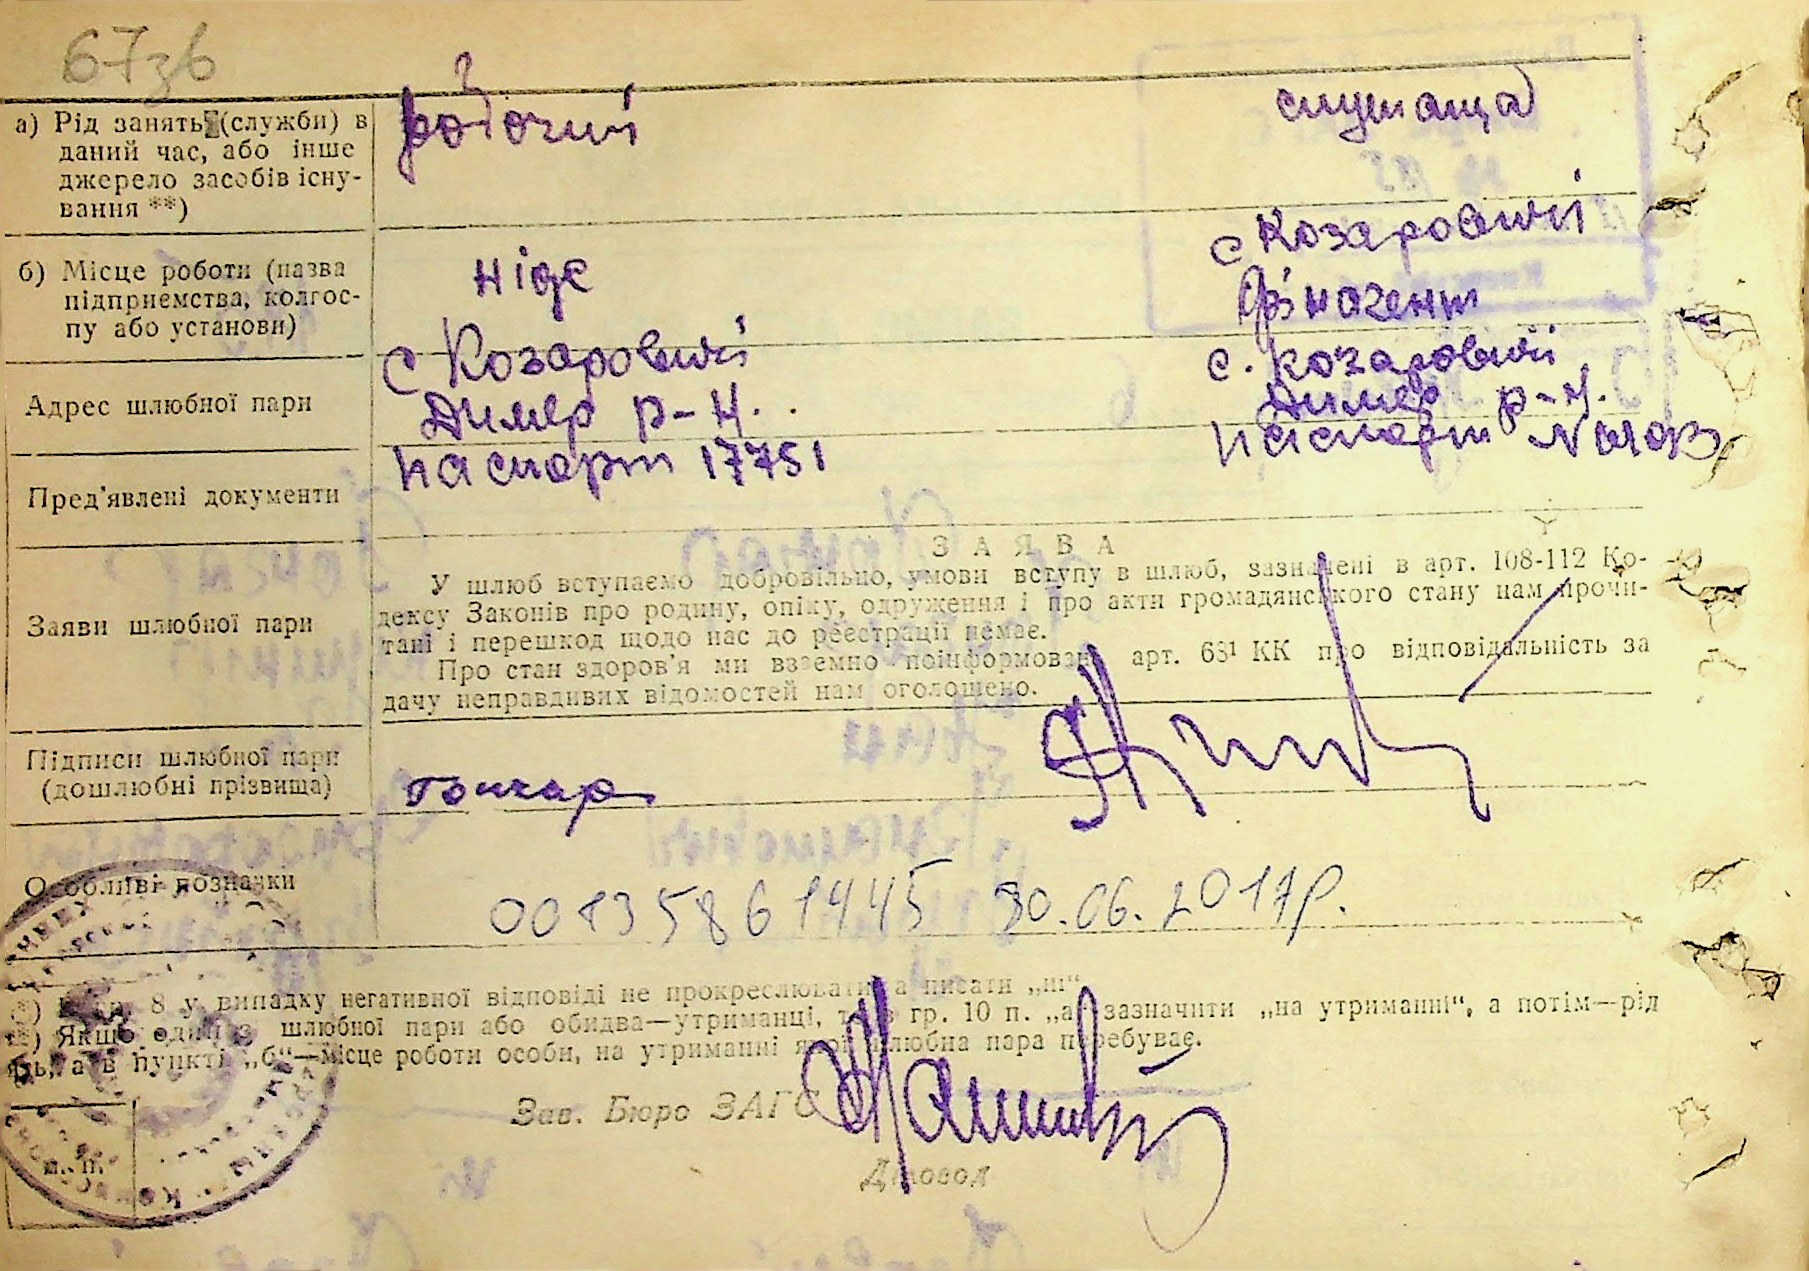 67зв
а) Рід занять (служби) в
даний час, або інше
джерело засобів існу-
вання **)
робочий
служаща
б) Місце роботи (назва
підприємства, колгос-
пу або установи)
ніде
с Козаровичі
Адрес шлюбної пари
с Козаровичі
Димер р-н.
с. Козаровичі
Димер р-н.
Пред'явлені документи
паспорт 17751
паспорт №
Заяви шлюбної пари
ЗАЯВА
У шлюб вступаємо добровільно, умови вступу в шлюб, зазначені в арт. 108-112 Ко-
дексу Законів про родину, опіку, одруження і про акти громадянського стану нам прочи-
тані і перешкод щодо нас до реєстрації немає.
Про стан здоров'я ми взаємно поінформовані арт. 68¹ КК про відповідальність за
дачу неправдивих відомостей нам оголошено.
Підписи шлюбної пари
(дошлюбні прізвища)
Гончар
Особливі позначки
00135861445 30.06.2017р.
8 у випадку негативної відповіді не прокреслювати, а писати „ні“
Якщо один з шлюбної пари або обидва—утриманці, то в гр. 10 п. „а“ зазначити „на утриманні“, а потім—рід
а в пункті „б“—місце роботи особи, на утриманні якої шлюбна пара перебуває.
Зав. Бюро ЗАГС
Діловод
м. п.